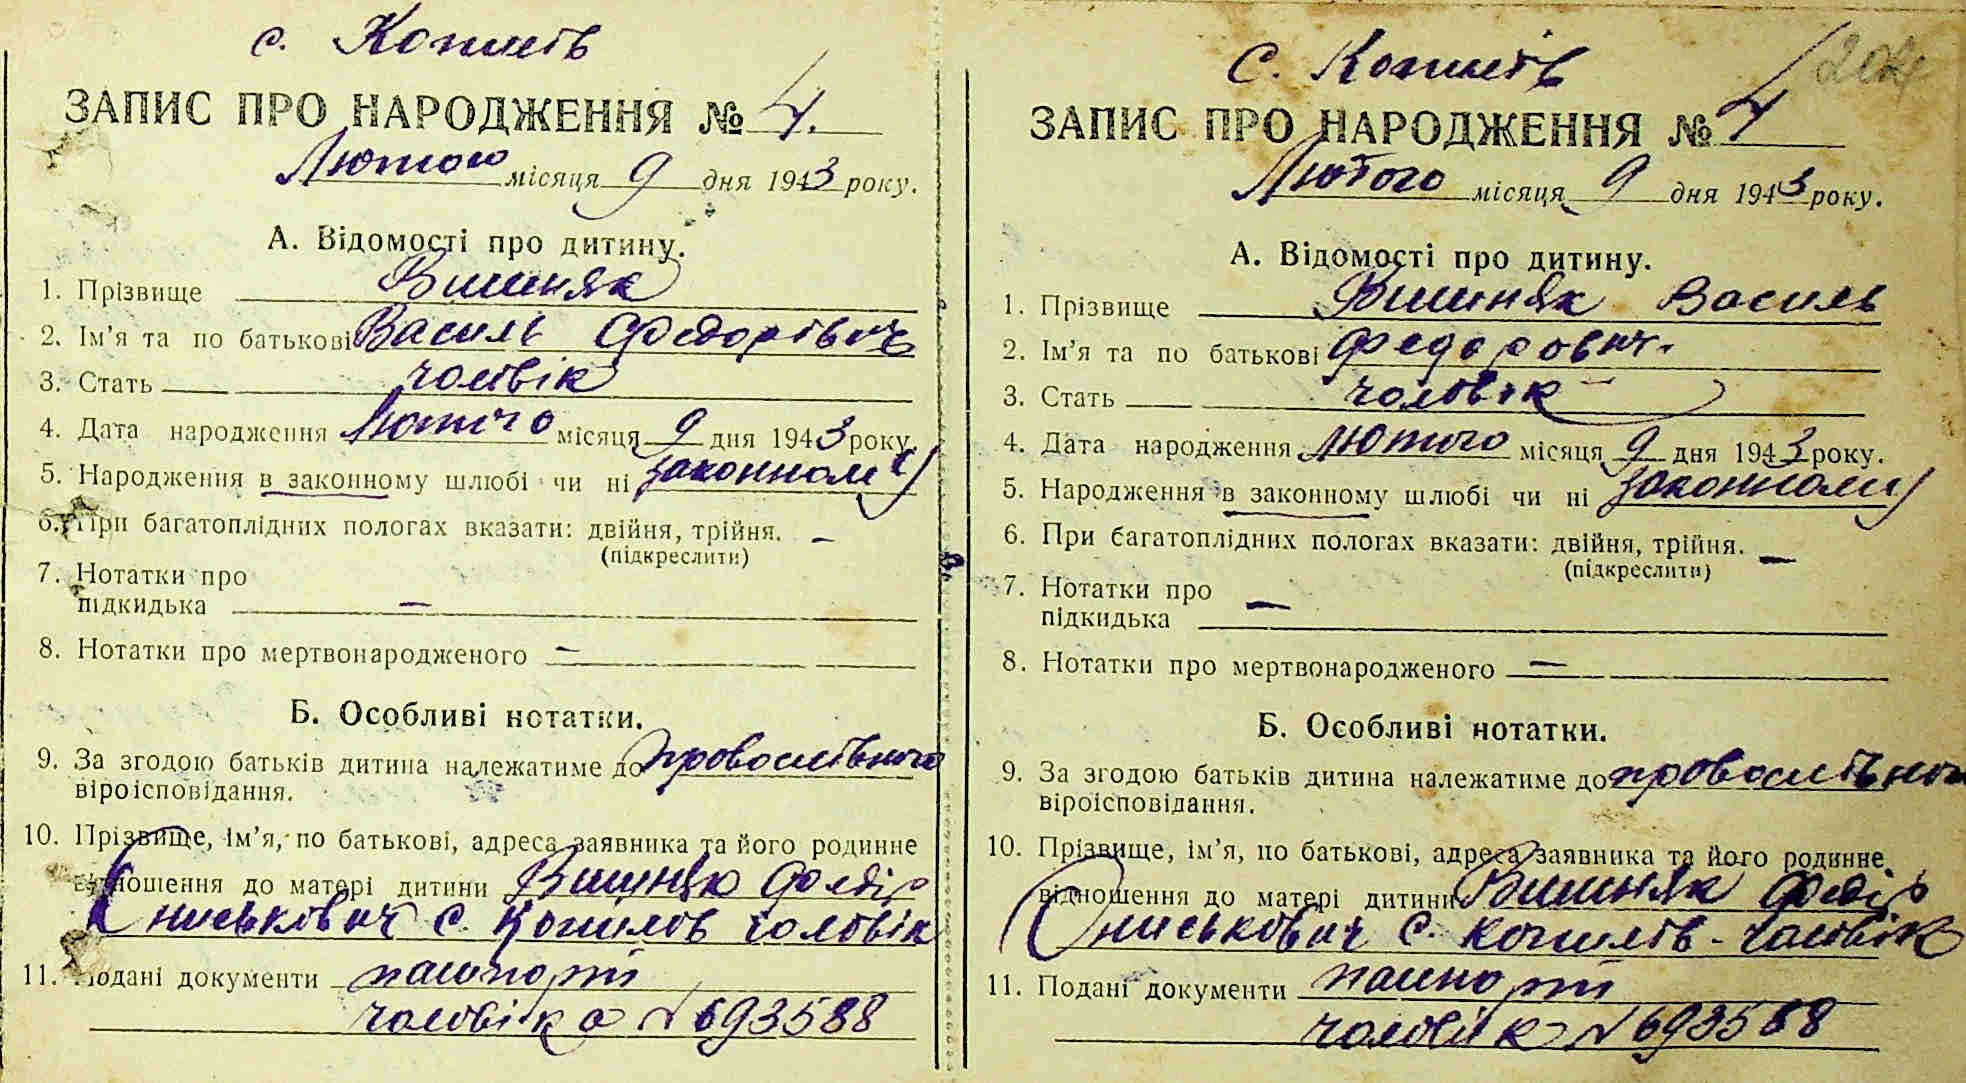 с. Копилів
ЗАПИС ПРО НАРОДЖЕННЯ № 4.
Лютого місяця 9 дня 1943 року.
А. Відомості про дитину.
1. Прізвище Вишняк
2. Ім'я та по батькові Василь Федорівич
3. Стать чоловік
4. Дата народження Лютого місяця 9 дня 1943 року.
5. Народження в законному шлюбі чи ні законному
6. При багатоплідних пологах вказати: двійня, трійня. —
(підкреслити)
7. Нотатки про
підкидька —
8. Нотатки про мертвонародженого —
Б. Особливі нотатки.
9. За згодою батьків дитина належатиме до провославного
віроісповідання.
10. Прізвище, ім'я, по батькові, адреса заявника та його родинне
відношення до матері дитини Вишняк Федір
Ониськович с. Копилов чоловік
11. Подані документи пашпорт
чоловіка №693588
с. Копилів
204
ЗАПИС ПРО НАРОДЖЕННЯ № 4
Лютого місяця 9 дня 1943 року.
А. Відомості про дитину.
1. Прізвище Вишняк Василь
2. Ім'я та по батькові Федорович.
3. Стать чоловік
4. Дата народження лютого місяця 9 дня 1943 року.
5. Народження в законному шлюбі чи ні законному
6. При багатоплідних пологах вказати: двійня, трійня. —
(підкреслити)
7. Нотатки про —
підкидька
8. Нотатки про мертвонародженого —
Б. Особливі нотатки.
9. За згодою батьків дитина належатиме до провославного
віроісповідання.
10. Прізвище, ім'я, по батькові, адреса заявника та його родинне
відношення до матері дитини Вишняк Федір
Ониськович с. Копилів - чоловік
11. Подані документи пашпорт
чоловіка №693588